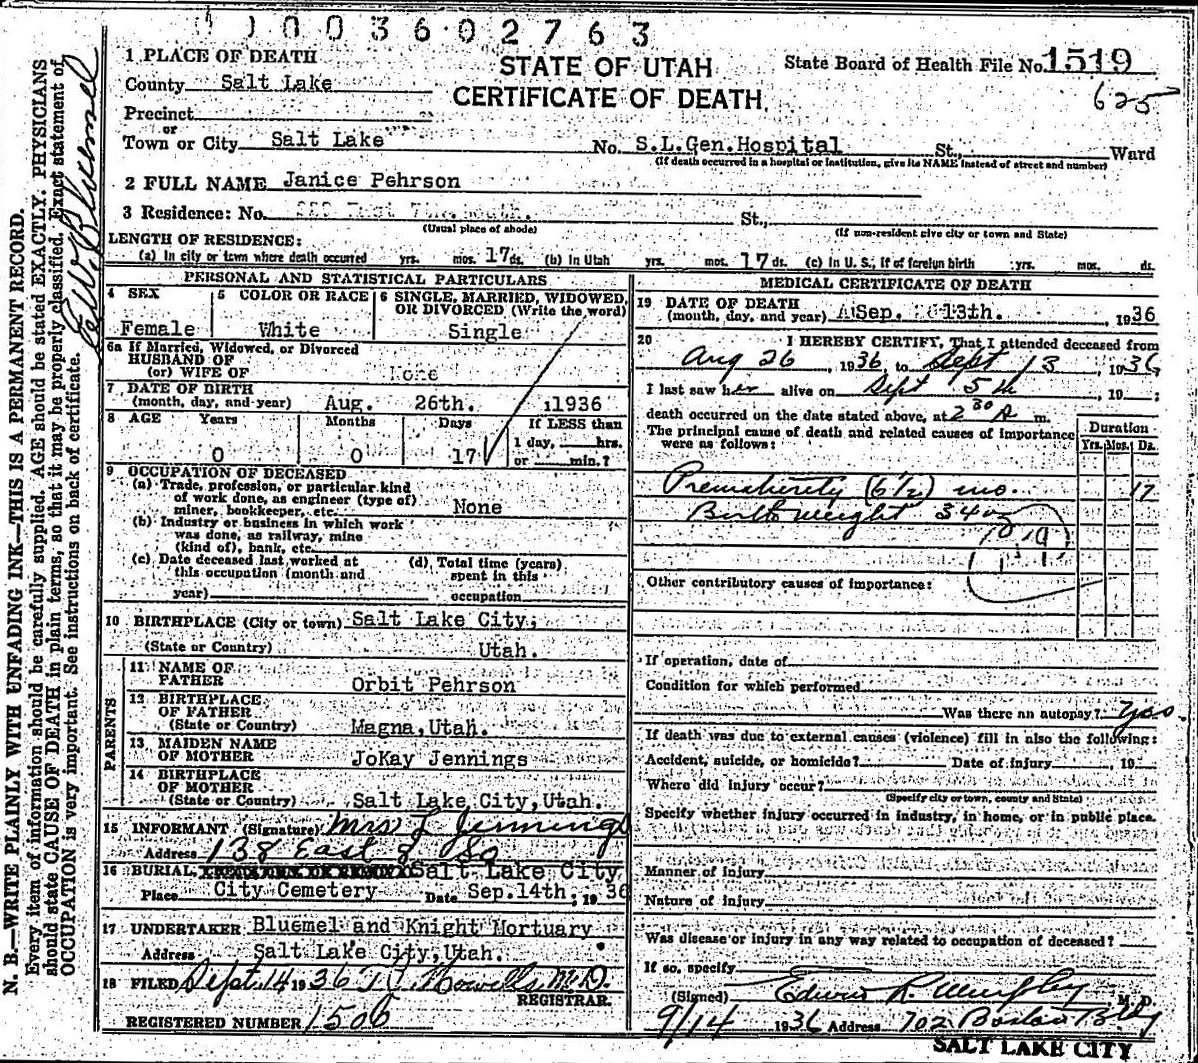 1003602763
1 PLACE OF DEATH
STATE OF UTAH
State Board of Health File No. 1519
County Salt Lake
CERTIFICATE OF DEATH
625
Precinct
or
Town or City Salt Lake No. S.L.Gen.Hospital St., Ward
(If death occurred in a hospital or institution, give its NAME instead of street and number)
2 FULL NAME Janice Pehrson
3 Residence: No. St.,
(Usual place of abode) (If non-resident give city or town and State)
LENGTH OF RESIDENCE:
(a) In city or town where death occurred yrs. mos. 17 ds. (b) In Utah yrs. mos. 17 ds. (c) In U. S., if of foreign birth yrs. mos. ds.
PERSONAL AND STATISTICAL PARTICULARS
4 SEX Female
5 COLOR OR RACE White
6 SINGLE, MARRIED, WIDOWED, OR DIVORCED (Write the word) Single
6a If Married, Widowed, or Divorced
HUSBAND OF
(or) WIFE OF None
7 DATE OF BIRTH
(month, day, and year) Aug. 26th. 1936
8 AGE Years Months Days If LESS than
1 day, hrs.
0 0 17 or min.?
9 OCCUPATION OF DECEASED
(a) Trade, profession, or particular kind
of work done, as engineer (type of)
miner, bookkeeper, etc. None
(b) Industry or business in which work
was done, as railway, mine
(kind of), bank, etc.
(c) Date deceased last worked at
this occupation (month and
year)
(d) Total time (years)
spent in this
occupation
10 BIRTHPLACE (City or town) Salt Lake City,
(State or Country) Utah.
PARENTS
11 NAME OF
FATHER Orbit Pehrson
12 BIRTHPLACE
OF FATHER
(State or Country) Magna, Utah.
13 MAIDEN NAME
OF MOTHER JoKay Jennings
14 BIRTHPLACE
OF MOTHER
(State or Country) Salt Lake City, Utah.
15 INFORMANT (Signature) Mrs J Jennings
Address 138 East 8 So
16 BURIAL, Salt Lake City
Place City Cemetery Date Sep.14th, 1936
17 UNDERTAKER Bluemel and Knight Mortuary
Address Salt Lake City, Utah.
18 FILED Sept. 14 1936 T J Howells M.D.
REGISTRAR.
REGISTERED NUMBER 1506
MEDICAL CERTIFICATE OF DEATH
19 DATE OF DEATH
(month, day, and year) Sep. 13th. , 1936
20 I HEREBY CERTIFY, That I attended deceased from
Aug 26 , 1936, to Sept 13 , 1936
I last saw her alive on Sept 5th , 19 ;
death occurred on the date stated above, at 2 30 A m.
The principal cause of death and related causes of importance
were as follows:
Duration
Yrs. Mos. Ds.
Prematurity (6 1/2) mo. 17
Birth weight 34 oz
Other contributory causes of importance:
If operation, date of
Condition for which performed
Was there an autopsy? Yes.
If death was due to external causes (violence) fill in also the following:
Accident, suicide, or homicide? Date of injury , 19
Where did injury occur?
(Specify city or town, county and State)
Specify whether injury occurred in industry, in home, or in public place.
Manner of injury
Nature of injury
Was disease or injury in any way related to occupation of deceased?
If so, specify
(Signed) Edwin R. Murphy M. D.
9/14 1936 Address 702 Boston Bldg
SALT LAKE CITY
N. B.—WRITE PLAINLY WITH UNFADING INK—THIS IS A PERMANENT RECORD.
Every item of information should be carefully supplied. AGE should be stated EXACTLY. PHYSICIANS
should state CAUSE OF DEATH in plain terms, so that it may be properly classified. Exact statement of
OCCUPATION is very important. See instructions on back of certificate.
E W Bluemel